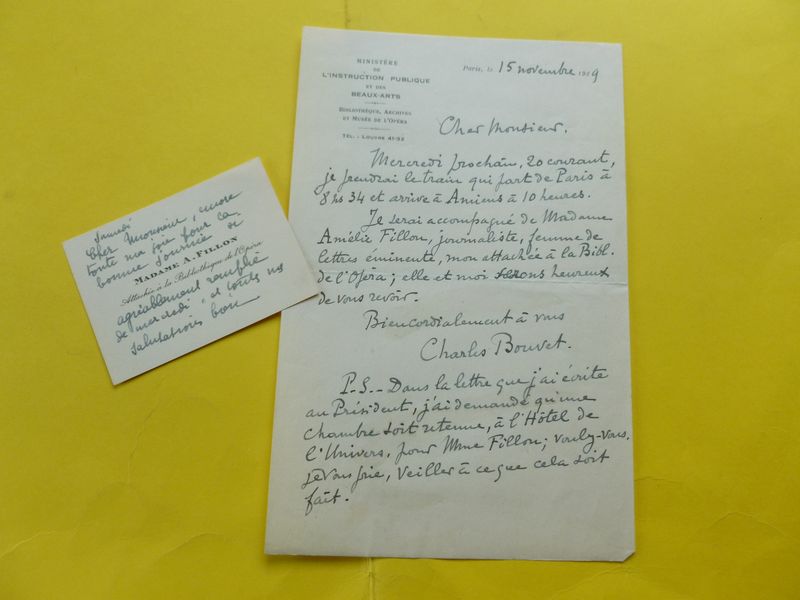 MINISTÈRE
DE
L'INSTRUCTION PUBLIQUE
ET DES
BEAUX-ARTS
BIBLIOTHÈQUE, ARCHIVES
ET MUSÉE DE L'OPÉRA
TÉL. : LOUVRE 41-92
Paris, le 15 novembre 1929
Cher Monsieur.
Mercredi prochain, 20 courant,
je prendrai le train qui part de Paris à
8 hs 34 et arrive à Amiens à 10 heures.
Je serai accompagné de Madame
Amélie Fillon, journaliste, femme de
lettres éminente, mon attachée à la Bibl.
de l'Opéra ; elle et moi serons heureux
de vous revoir.
Bien cordialement à vous
Charles Bouvet.
P.S. - Dans la lettre que j'ai écrite
au Président, j'ai demandé qu'une
chambre soit retenue, à l'Hôtel de
l'Univers, pour Mme Fillon ; voulez-vous,
je vous prie, veiller à ce que cela soit
fait.
Samedi
Cher Monsieur, encore
toute ma joie pour la
bonne journée si
MADAME A. FILLON
Attachée à la Bibliothèque de l'Opéra
agréablement remplie
de "mercredi" et toutes mes
salutations